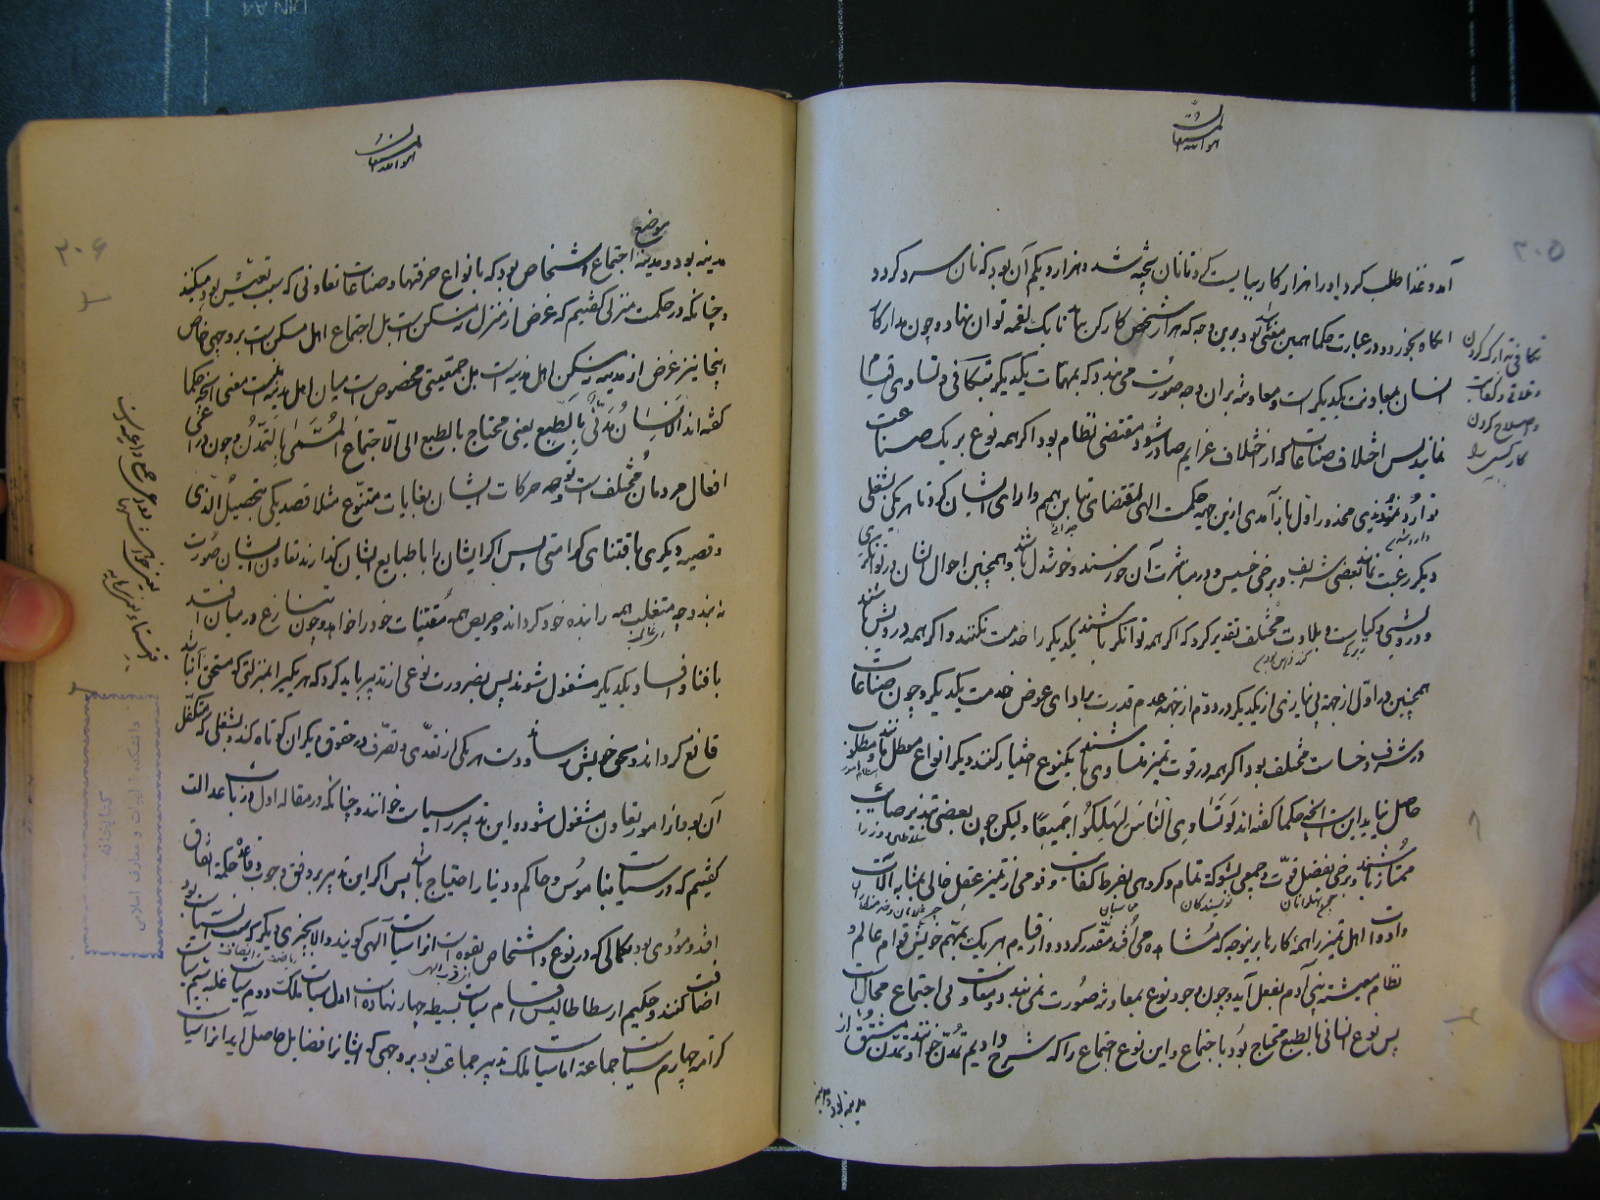 هو الله المستعان
۲۰۵
آمد و غذا طلب کرد او را هزار کار ببایست کرد تا نان پخته شد و هزار و یکم آن بود که نان سرد کرد و
انگاه بخورد و در عبارت حکما همین معنی بود برین وجه که هزار شخص کارکن باید تا یک لقمه توان نهاد و چون مدار کار
انسان بمعاونت یکدیگر است و معاونت بران وجه صورت می بندد که بمهمات یکدیگر بتکافی و تساوی قیام
نمایند پس اختلاف صناعات که از اختلاف عزایم صادر شود مقتضی نظام بود اگر همه نوع بر یک صناعت
توارد نمودندی محذور اول باز آمدی ازین جهة حکمت الهی اقتضای تباین همم و ارای ایشان کرد تا هر یکی بشغلی
دیگر رغبت نمایند بعضی شریف و برخی خسیس و در مباشرت آن خورسند و خوشدل باشند و همچنین احوال ایشان در توانگری
و درویشی و کیاست و بلادت مختلف تقدیر کرد که اگر همه توانگر باشند یکدیگر را خدمت نکنند و اگر همه درویش باشند
همچنین در اول از جهة بی نیازی از یکدیگر و در دوم از جهة عدم قدرت بر ادای عوض خدمت یکدیگر و چون صناعات
در شرف و خساست مختلف بود اگر همه در قوت تمیز متساوی باشند یکنوع اختیار کنند و دیگر انواع معطل مانند و مطلوب
حاصل نیاید این است انچه حکما گفته اند لو تساوی الناس لهلکوا جمیعا ولیکن چون بعضی بتدبیر صایب
ممتاز باشند و برخی بفضل قوت و جمعی بشوکة تمام و گروهی بفرط کفایت و قومی از تمیز و عقل خالی بمثابه آلات
و ادوات اهل تمیز را همه کارها برینوجه که مشاهده می افتد مقدر گردد و از قیام هر یک بمهم خویش قوام عالم و
نظام معیشة بنی آدم بفعل آید و چون وجود نوع بمعاونة صورت نمی بندد و معاونت بی اجتماع محال است
پس نوع انسانی بالطبع محتاج بود باجتماع و این نوع اجتماع را که شرح دادیم تمدن خوانند و تمدن مشتق از
مدینه بود و مدینه
تکافی تدارک کردن
هو الله المستعان
۲۰۶
موضع
مدینه بود و مدینه اجتماع اشخاص بود که بانواع حرفتها و صناعات تعاونی که سبب تعیش بود میکنند
و چنانکه در حکمت منزلی گفتیم که غرض از منزل نه مسکن است بل اجتماع اهل مسکن است بر وجهی خاص
اینجا نیز غرض از مدینه نه مسکن اهل مدینه است بل جمعیتی مخصوص است میان اهل مدینه اینست معنی انچه حکما
گفته اند الانسان مدنی بالطبع یعنی محتاج بالطبع الی الاجتماع المسمی بالتمدن و چون دواعی
افعال مردمان مختلف است و توجه حرکات ایشان بغایات متنوع مثلا قصد یکی بتحصیل لذتی
و قصد دیگری باقتنای کرامتی پس اگر ایشان را با طبایع ایشان گذارند تعاون ایشان صورت
نه بندد چه متغلب همه را بنده خود گرداند و حریص همه مقتنیات خود را خواهد و چون تنازع در میان افتد
بافنا و افساد یکدیگر مشغول شوند پس بضرورت نوعی از تدبیر باید کرد که هر یکی را بمنزلتی که مستحق آن باشد
قانع گرداند و بحق خویش رساند و دست هر یکی از تعدی و تصرف در حقوق دیگران کوتاه کند و بشغلی که متکفل
آن بود از امور تعاون مشغول شود و این تدبیر را سیاست خوانند و چنانکه در مقاله اول در باب عدالت
گفتیم که در سیاست بناموس و حاکم و دینار احتیاج باشد پس اگر این تدبیر بر وفق وجوب و قاعده حکمت اتفاق
افتد و مؤدی بود بکمالی که در نوع و اشخاص بقوه است انرا سیاست آلهی گویند و الا بچیزی دیگر که سبب آن سیاست بود
اضافت کنند و حکیم ارسطاطالیس اقسام سیاست بسیطه چهار نهاده است اول سیاست ملک و دوم سیاست غلبه سیم سیاست
کرامة چهارم سیاست جماعة اما سیاست ملک تدبیر جماعت بود بر وجهی که ایشانرا فضایل حاصل آید انرا سیاست
دانشکده الهیات و معارف اسلامی
کتابخانه